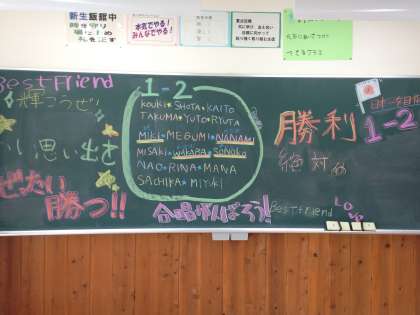 新生飯館中
時を守り
場を清め
礼を正す
本気でやる！
みんなでやる！
Best Friend
輝こうぜ！
いい思い出を
ぜったい
勝つ!!
1-2
KOUKI★SHOTA★KAITO
TAKUMA★YUTO★RYUTA
MIKI★MEGUMI★NANAMI
MISAKI★WAKABA★SONOKO
NAO★RINA★MANA
SACHIKA★MIYUKI
合唱がんばろう!!
勝利
絶対
日本一を目指
1-2
Best Friend
LOVE